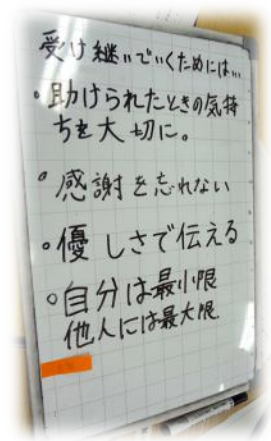 受け継いでいくためには…
・助けられたときの気持
ちを大切に。
・感謝を忘れない
・優しさで伝える
・自分は最小限
他人には最大限